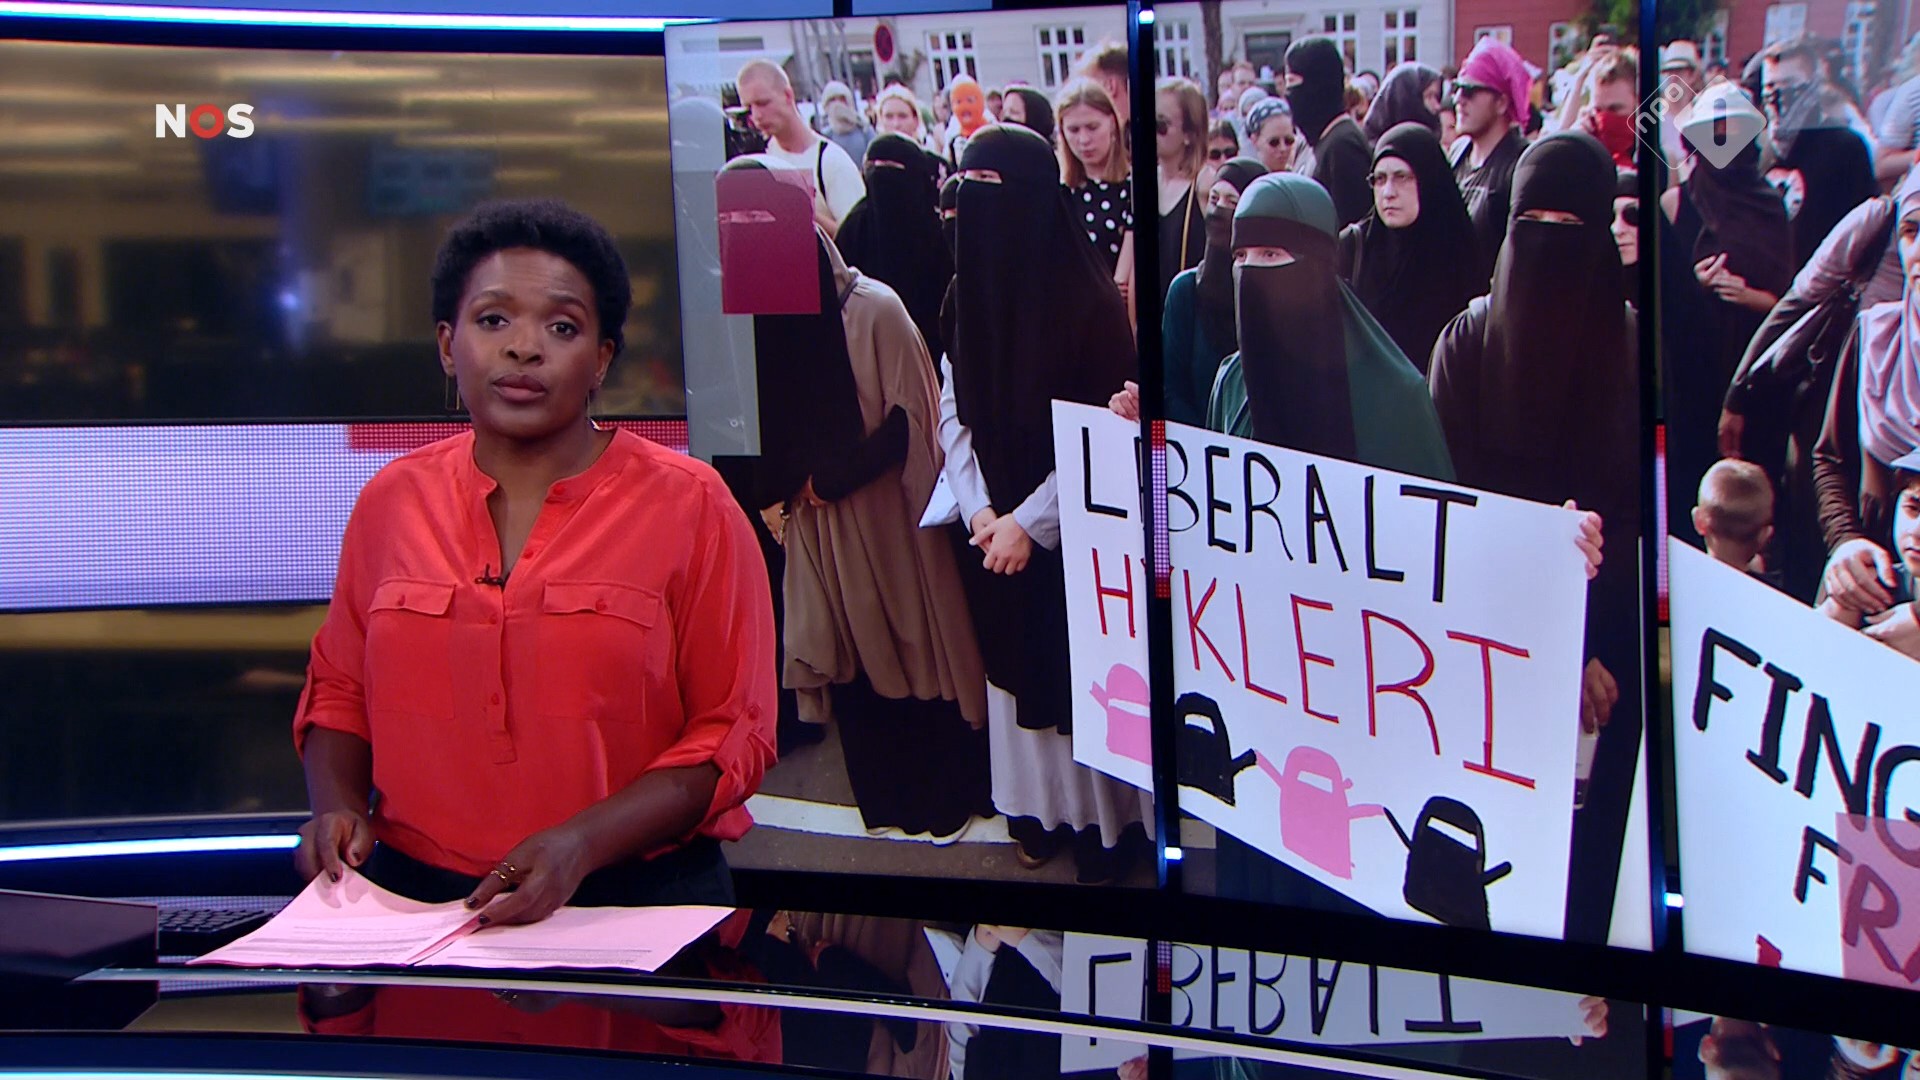 NOS
npo 1
LIBERALT
HYKLERI
FING
FRA
LIBERALT